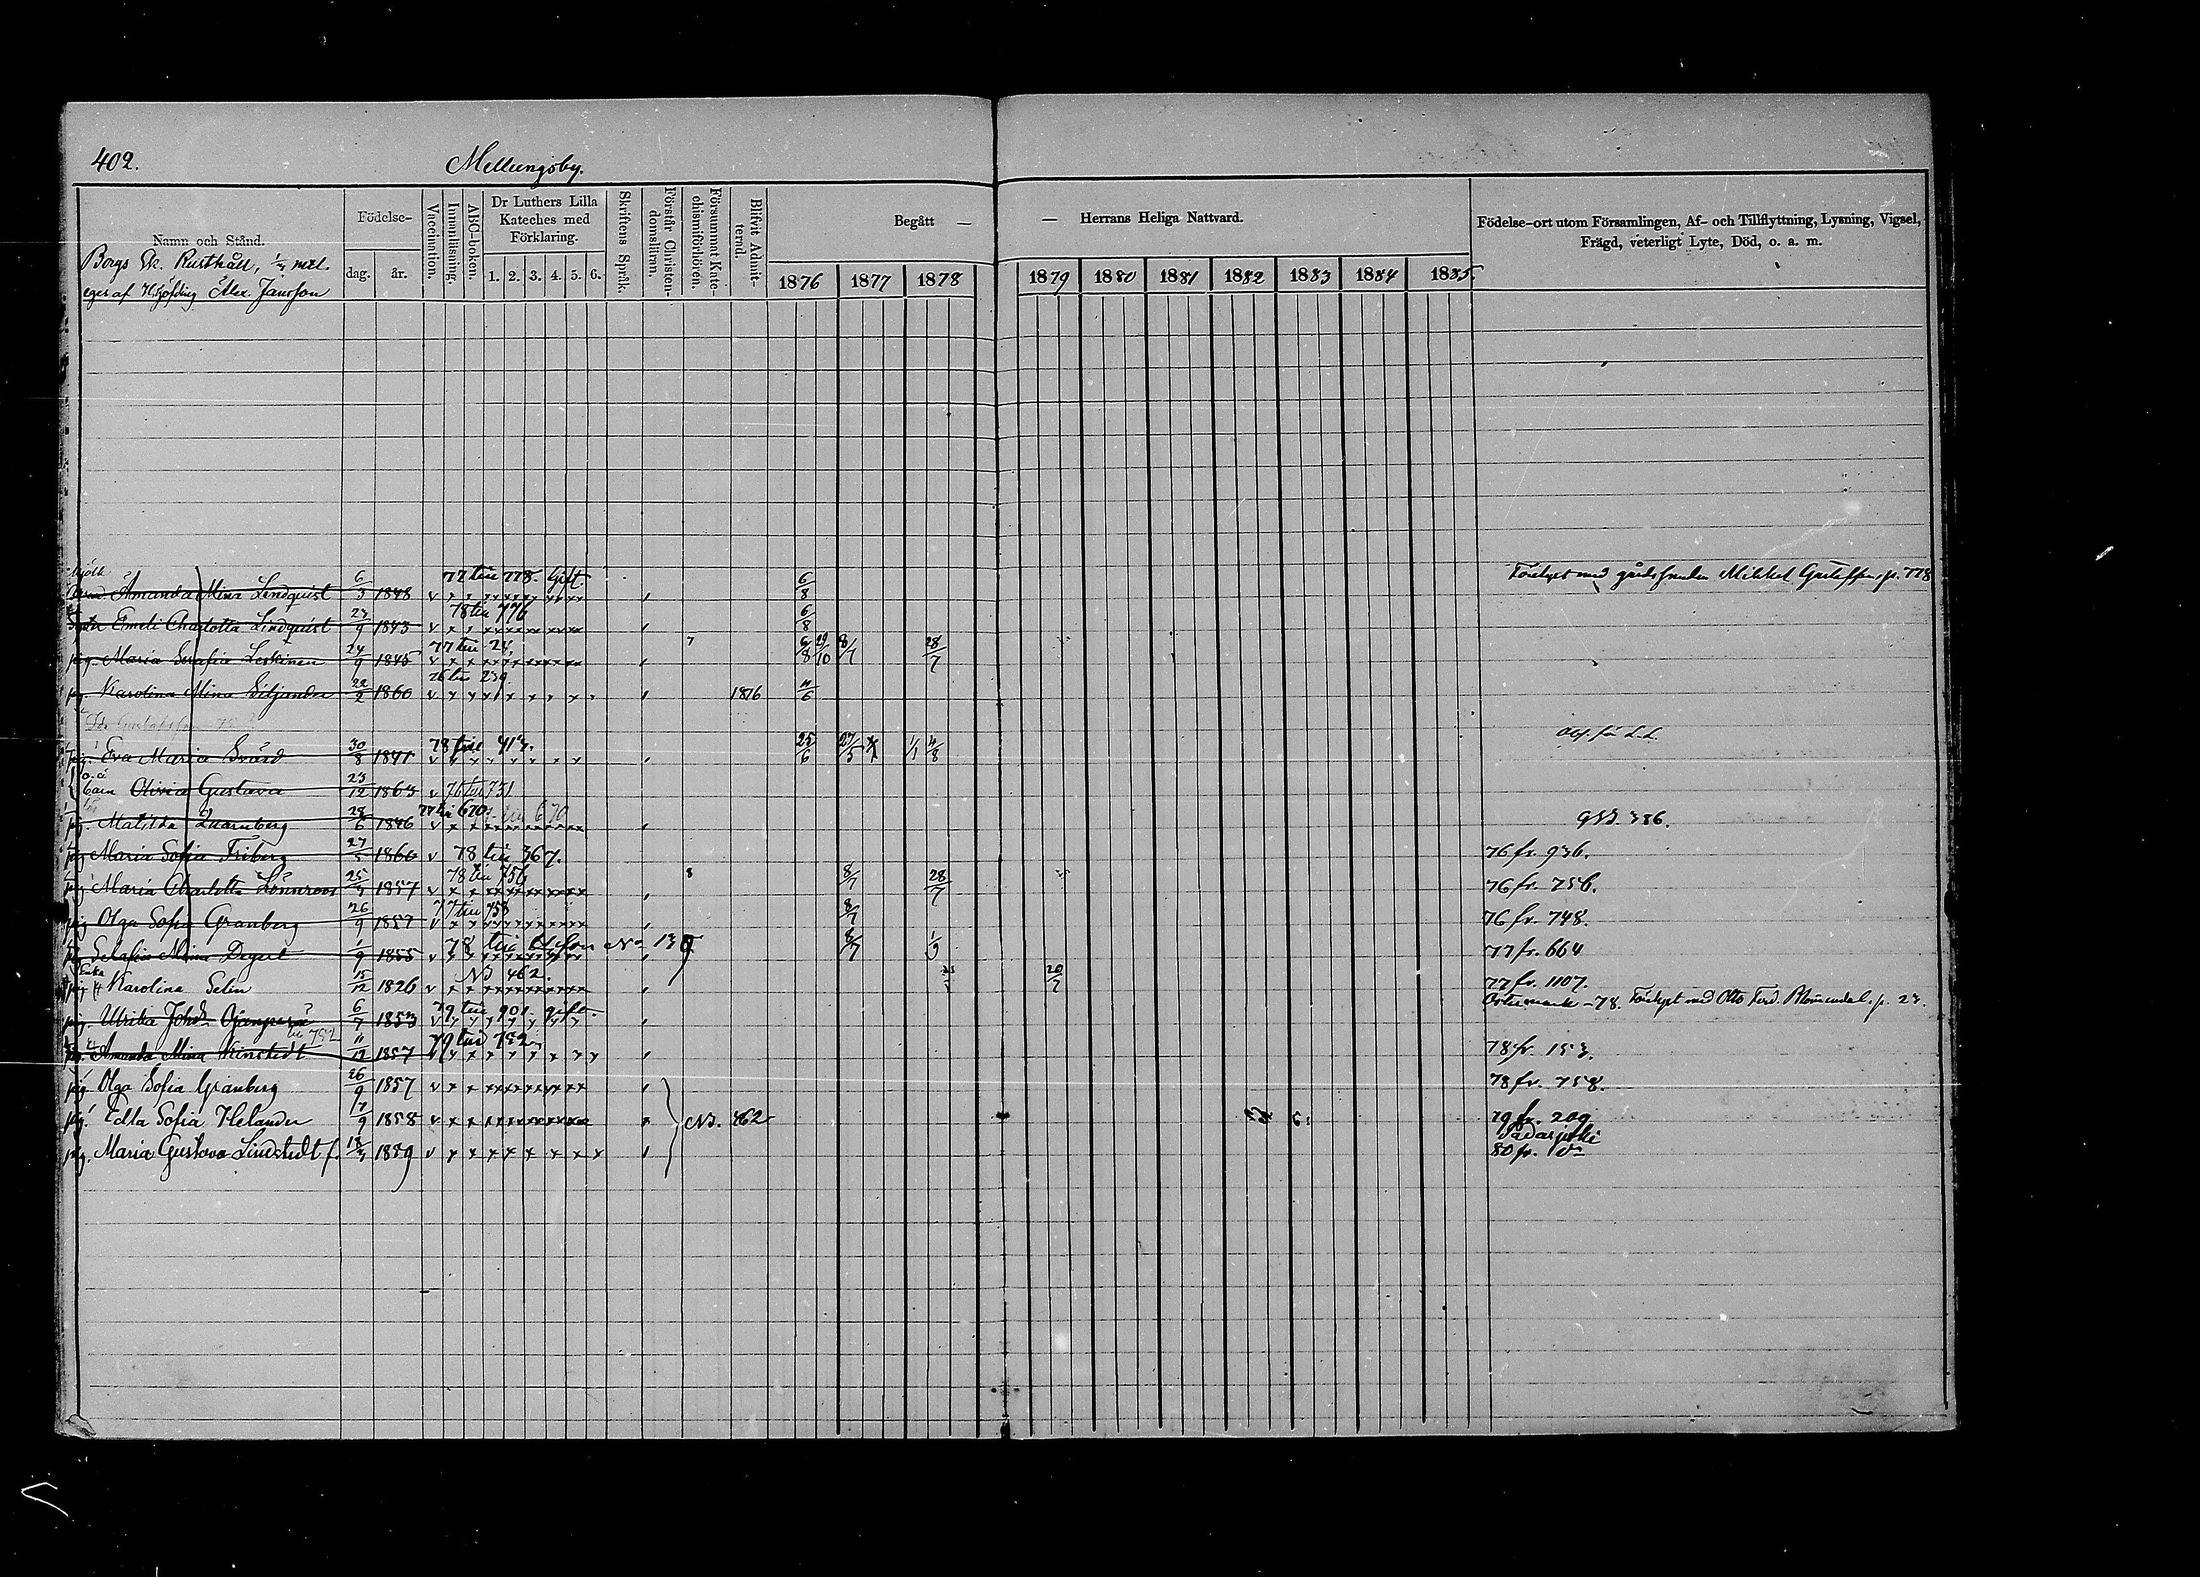 402.
Mellungsby.
Namn och Stånd.
Borgs Sk. Rusthåll, 1/4 mtl.
eges af H.höfding Alex. Jansson
Födelse-
dag.
år.
Vaccination.
Innanläsning.
ABC-boken.
Dr Luthers Lilla
Kateches med
Förklaring.
1. 2. 3. 4. 5. 6.
Skriftens Språk.
Förstår Christen-
domsläran.
Försummat Kate-
chismiförhören.
Blifvit Admit-
terad.
Begått —
1876 1877 1878
— Herrans Heliga Nattvard.
1879 1880 1881 1882 1883 1884 1885.
Födelse-ort utom Församlingen, Af- och Tillflyttning, Lysning, Vigsel,
Frägd, veterligt Lyte, Död, o. a. m.
77 till 778. Gift.
Amanda Mina Lindquist 6/3 1848 v x x 6/8 Förlyst med Mikkel p. 778
78 till 776
Emeli Charlotta Lindquist 27/9 1843 6/8
77 till 24
pig. Maria Serafia Leskinen 24/9 1845 v 7 6/8 29/10 8/7 28/7
76 till 239
pig. Karolina Mina Siljander 22/2 1860 v 1876 11/6
78 till 417.
pig. Eva Maria Svärd 30/8 1841 v 25/6 27/5 11/8
o.ä.
barn Olivia Gustava 23/12 1863 v 76 till 731
77 till 670. till 670
pig. Matilda Quarnberg 28/6 1846 v 386.
pig. Maria Sofia Friberg 27/5 1860 v 78 till 367. 76 fr. 936.
78 till 756
pig. Maria Charlotta Lönnroos 25/3 1857 v 8/7 28/7 76 fr. 756.
77 till 758
pig. Olga Sofia Granberg 26/9 1857 v 8/7 76 fr. 748.
78 till No 139
pig. Serafia Mina Degert 1/9 1855 v 8/7 1/9 77 fr. 664
NB 462.
Enka
Karolina Selin 15/12 1826 v 20/7 77 fr. 1107.
79 till 901. gift.
pig. Ulrika Johanna 6/7 1853 v Östermark -78. Förlyst med Otto Ferd. Blomendal. p. 23.
till 752
79 till 752
pig. Amanda Mina Winstedt 11/12 1857 v 78 fr. 153.
pig. Olga Sofia Granberg 26/9 1857 v 78 fr. 758.
pig. Edla Sofia Helander 17/9 1858 v NB. 462 79 fr. 209
Padasjoki
pig. Maria Gustava Lindstedt f. 18/3 1859 v 80 fr.